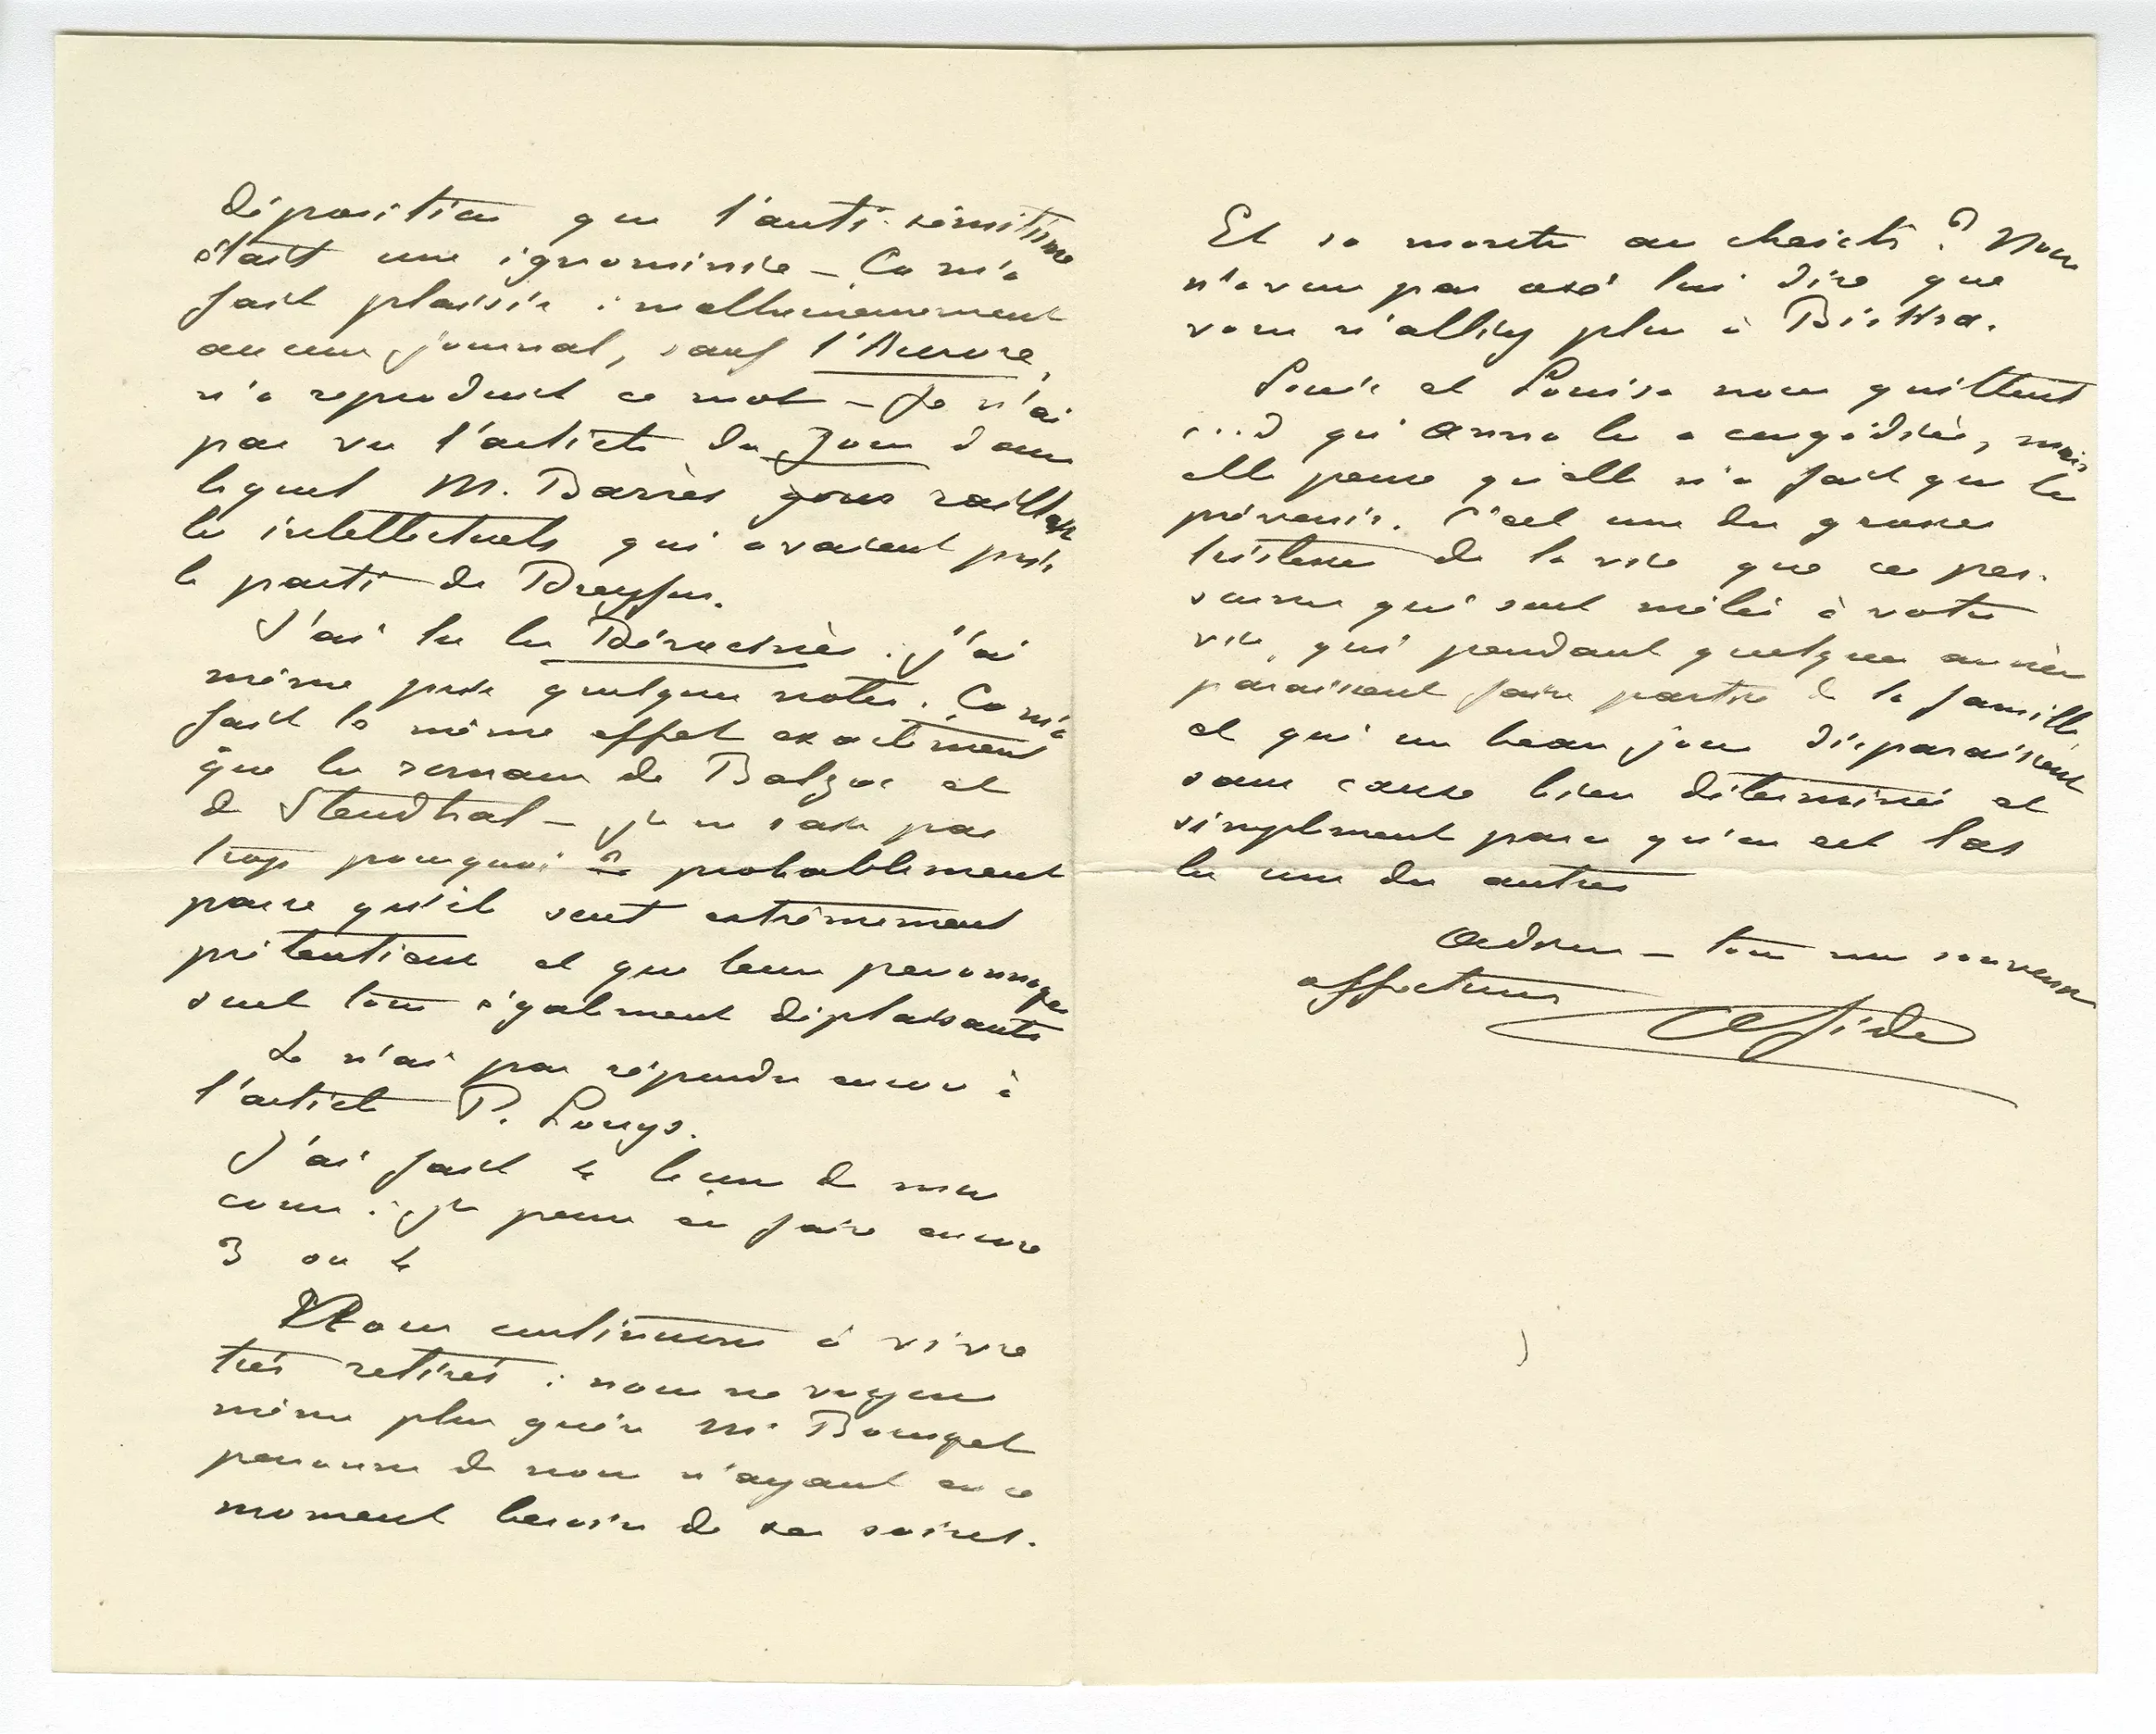 déposition que l'anti-sémitisme
était une ignominie – Ça m'a
fait plaisir : malheureusement
aucun journal, sauf l'Aurore,
n'a reproduit ce mot – Je n'ai
pas vu l'article du Jour dans
lequel M. Barrès
les intellectuels qui avaient pris
le parti de Dreyfus.
J'ai lu les Déracinés. J'ai
même pris quelques notes. Ça m'a
fait le même effet exactement
que les romans de Balzac et
de Stendhal – je ne sais pas
trop pourquoi probablement
parce qu'ils sont extrêmement
prétentieux et que leurs personnages
sont tous également déplaisants
Je n'ai pas répondu encore à
l'article P. Louys.
J'ai fait 4 leçons de mon
cours : je pense en faire encore
3 ou 4
Nous continuons à vivre
très retirés : nous ne voyons
même plus guère Mr Bourget
personne de nous n'ayant en ce
moment besoin de ses soins.
Et sa montre au cheick ? Nous
n'avons pas osé lui dire que
vous n'alliez plus à Biskra.
Louis et Louise nous quittent
qu'Anna les a congédiés, mais
elle pense qu'elle n'a fait que les
prévenir. C'est une des grosses
tristesses de la vie que ces per-
sonnes qui sont mêlées à votre
vie, qui pendant quelques années
paraissent faire partie de la famille,
et qui un beau jour disparaissent
sans cause bien déterminée et
simplement parce qu'on est las
les uns des autres
Adieu – tous nos souvenirs
affectueux
Ch Gide